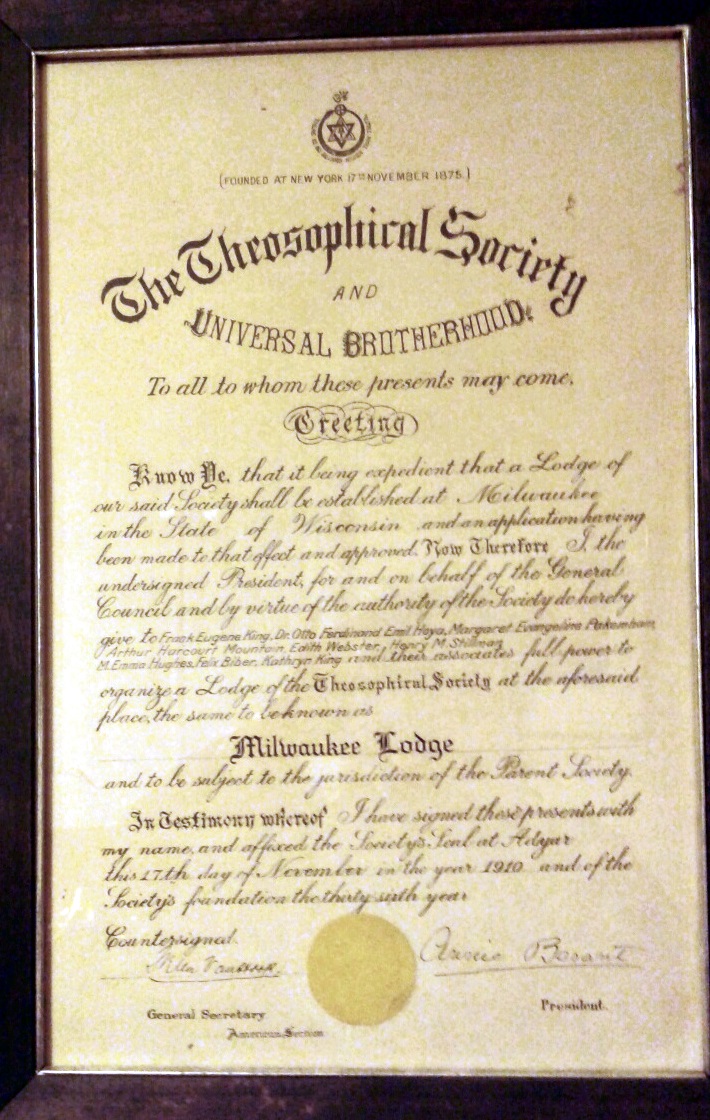 (FOUNDED AT NEW YORK 17TH NOVEMBER 1875.)
The Theosophical Society
AND
UNIVERSAL BROTHERHOOD.
To all to whom these presents may come,
Greeting
Know Ye, that it being expedient that a Lodge of
our said Society shall be established at Milwaukee
in the State of Wisconsin and an application having
been made to that effect and approved. Now Therefore I, the
undersigned President, for and on behalf of the General
Council and by virtue of the authority of the Society do hereby
give to Frank Eugene King, Dr. Otto Ferdinand Emil Heya, Margaret Evangeline Pakenham,
Arthur Harcourt Mountain, Edith Webster, Henry M. Stillman,
M. Emma Hughes, Felix Biber, Kathryn King and their associates full power to
organize a Lodge of the Theosophical Society at the aforesaid
place, the same to be known as
Milwaukee Lodge
and to be subject to the jurisdiction of the Parent Society.
In Testimony whereof I have signed these presents with
my name, and affixed the Society's Seal at Adyar
this 17th day of November in the year 1910 and of the
Society's foundation the thirty sixth year
Countersigned.
Annie Besant
General Secretary
President.
American Section